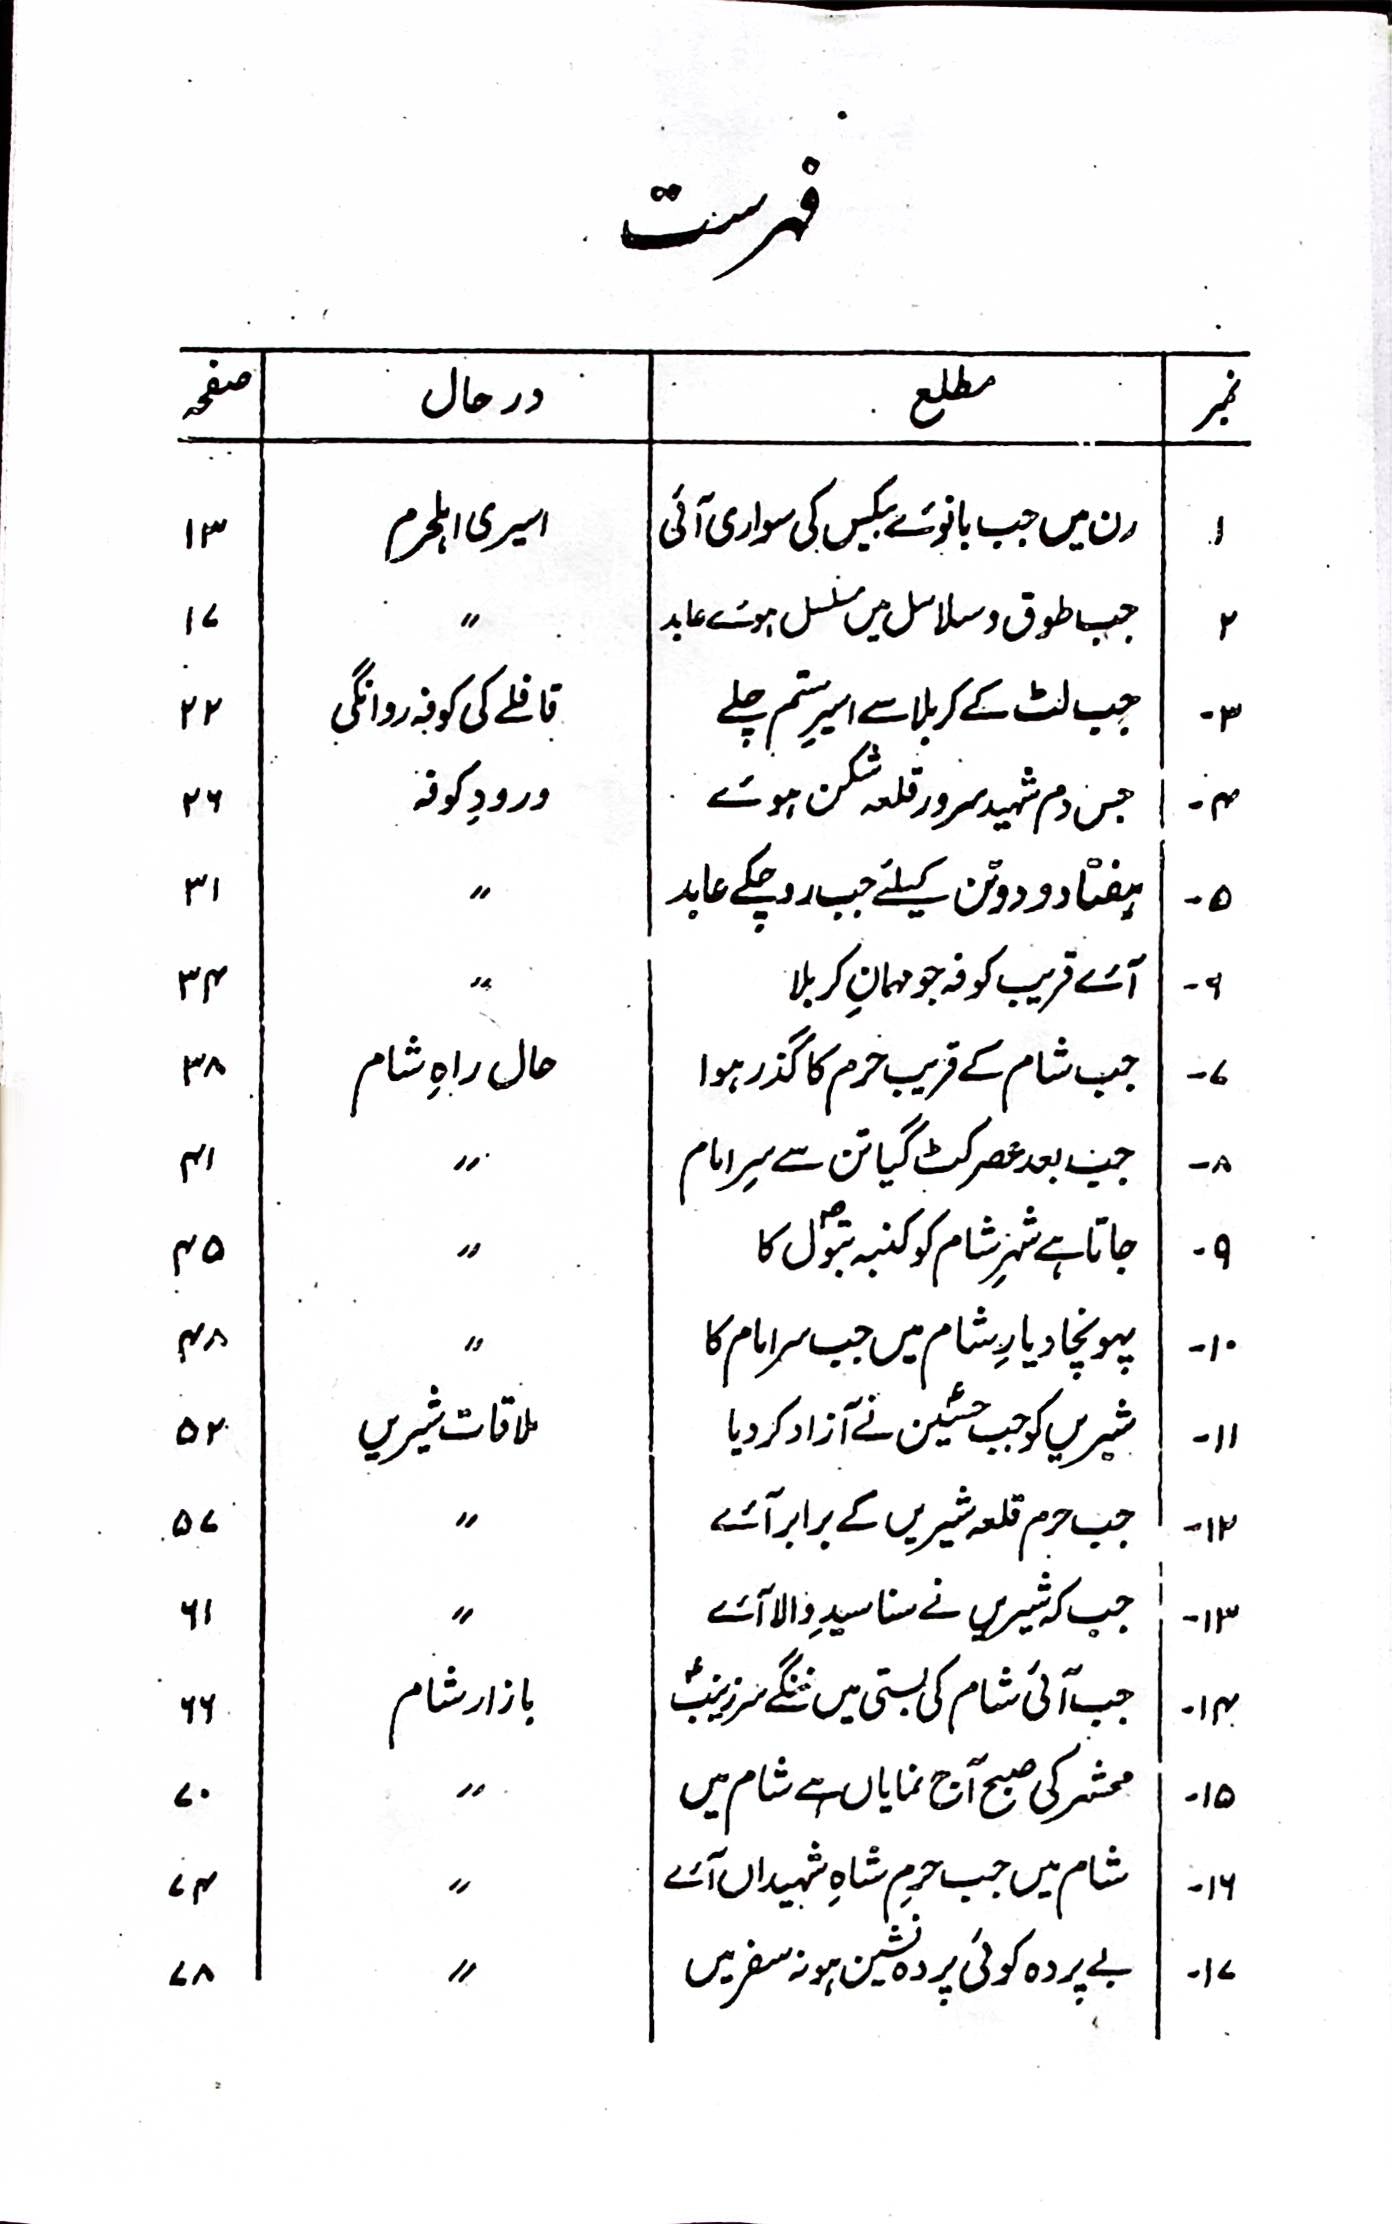 فہرست
نمبر مطلع در حال صفحہ
۱ رن میں جب بانوئے بیکس کی سواری آئی اسیری اہلحرم ۱۳
۲ جب طوق و سلاسل میں مسلسل ہوئے عابد 〃 ۱۷
۳- جب لٹ کے کربلا سے اسیرِ ستم چلے قافلے کی کوفہ روانگی ۲۲
۴- جس دم شہید سرور قلعہ شکن ہوئے ورودِ کوفہ ۲۶
۵- ہفتاد و دو تن کیلئے جب رو چکے عابد 〃 ۳۱
۶- آئے قریب کوفہ جو مہمانِ کربلا 〃 ۳۴
۷- جب شام کے قریب حرم کا گذر ہوا حال راہِ شام ۳۸
۸- جب بعد عصر کٹ گیا تن سے سرِ امام 〃 ۴۱
۹- جاتا ہے شہرِ شام کو کنبہ بتولؐ کا 〃 ۴۵
۱۰- پہونچا دیارِ شام میں جب سر امام کا 〃 ۴۸
۱۱- شیریں کو جب حسینؑ نے آزاد کر دیا ملاقات شیریں ۵۲
۱۲- جب حرم قلعہ شیریں کے برابر آئے 〃 ۵۷
۱۳- جب کہ شیریں نے سنا سیدِ والا آئے 〃 ۶۱
۱۴- جب آئی شام کی بستی میں ننگے سر زینبؑ بازار شام ۶۶
۱۵- محشر کی صبح آج نمایاں ہے شام میں 〃 ۷۰
۱۶- شام میں جب حرمِ شاہِ شہیداں آئے 〃 ۷۴
۱۷- بے پردہ کوئی پردہ نشین ہو نہ سفر میں 〃 ۷۸